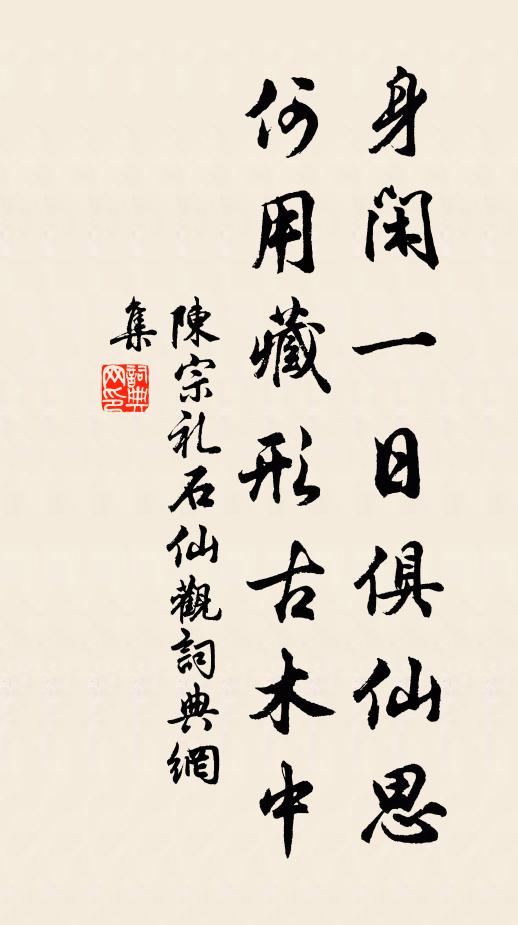 身閑一日俱仙思
何用藏形古木中
陳宗礼石仙觀詞典網
集
詞典
网印